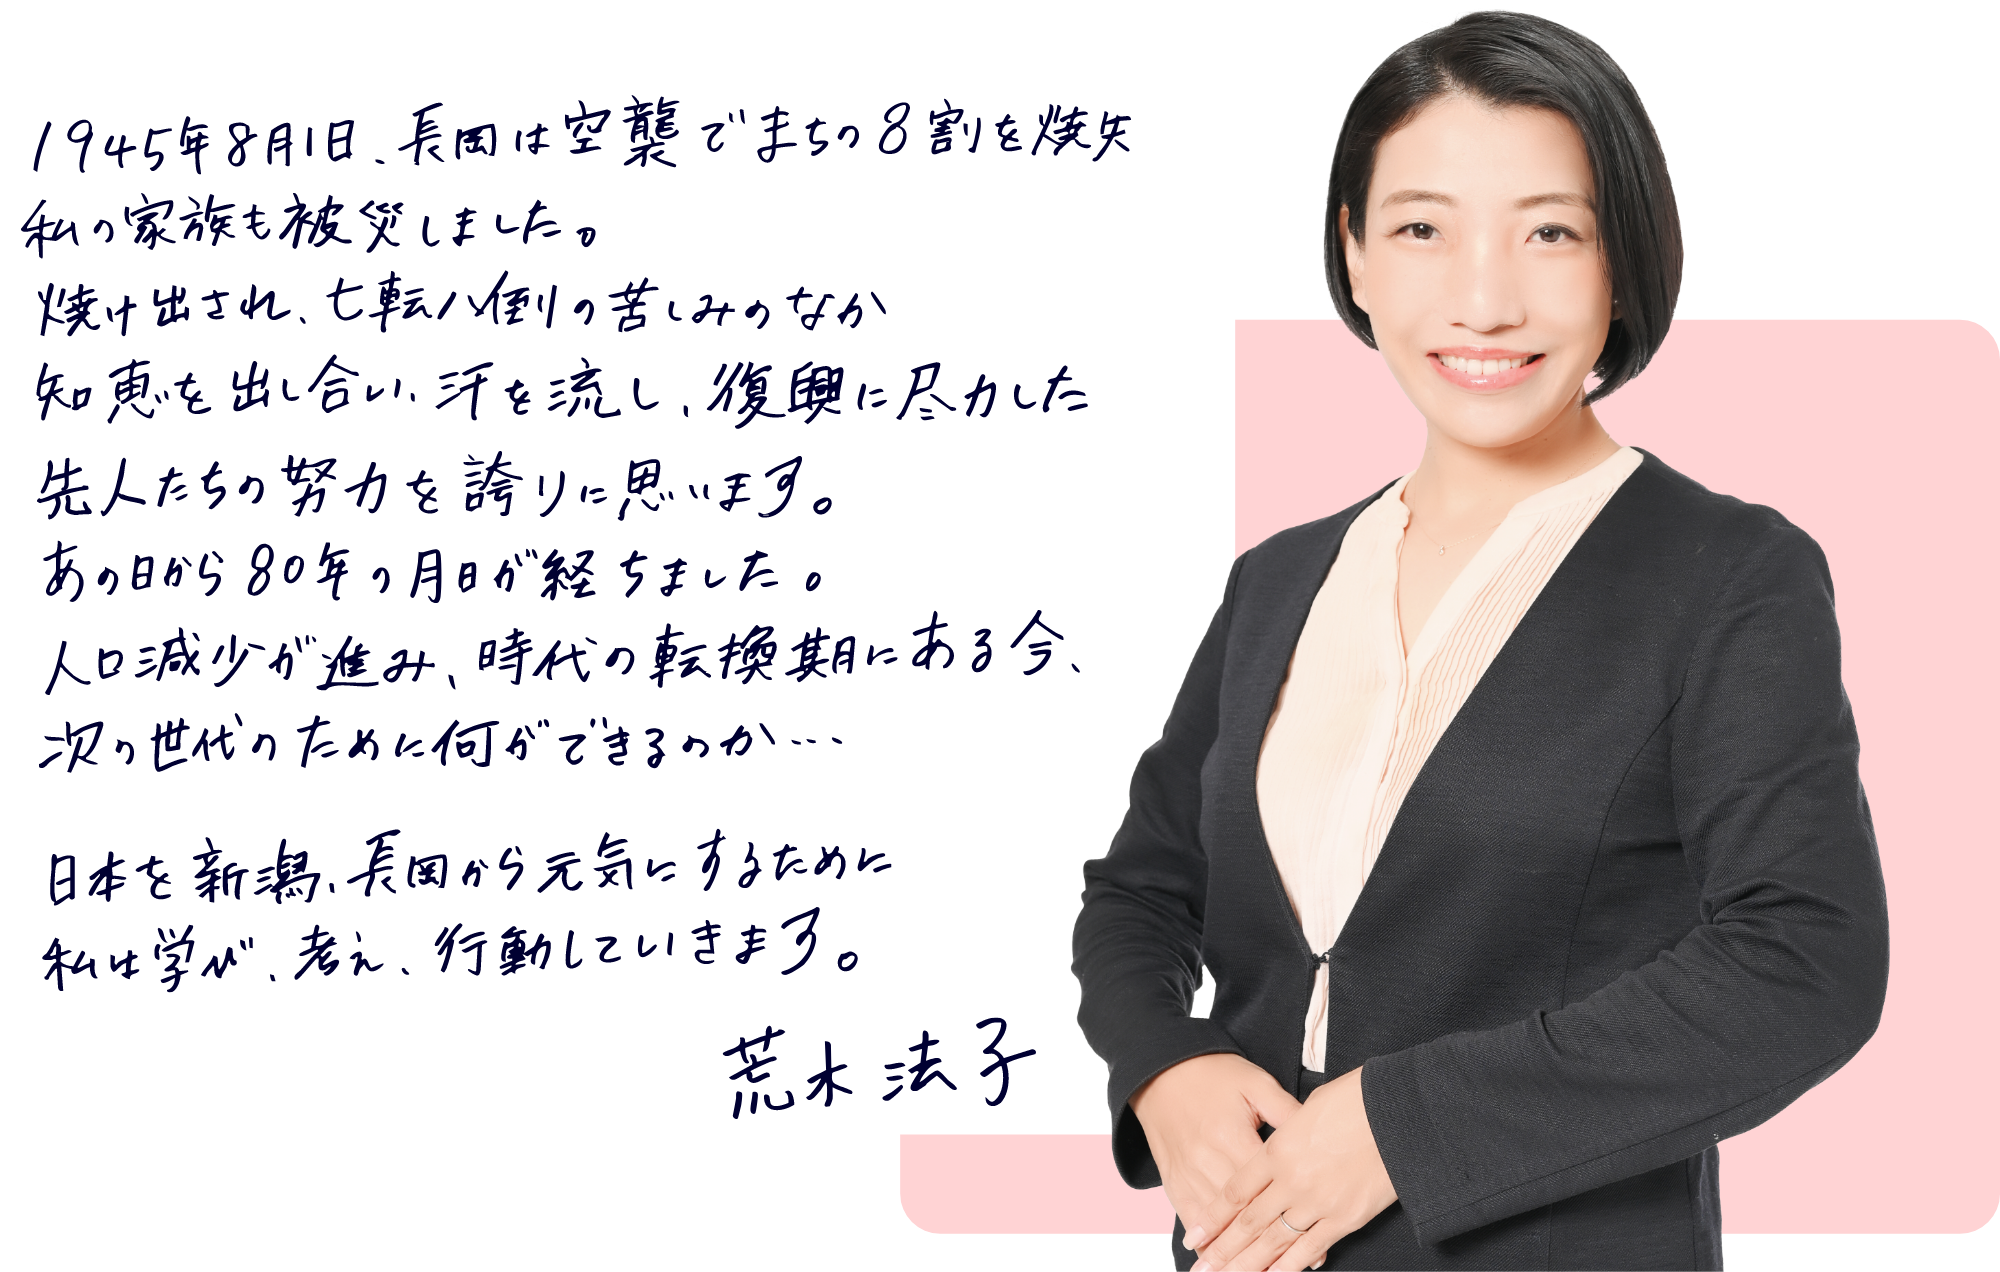 1945年8月1日、長岡は空襲でまちの8割を焼失
私の家族も被災しました。
焼け出され、七転八倒の苦しみのなか
知恵を出し合い、汗を流し、復興に尽力した
先人たちの努力を誇りに思います。
あの日から80年の月日が経ちました。
人口減少が進み、時代の転換期にある今、
次の世代のために何ができるのか…
日本を新潟、長岡から元気にするために
私は学び、考え、行動していきます。
荒木法子